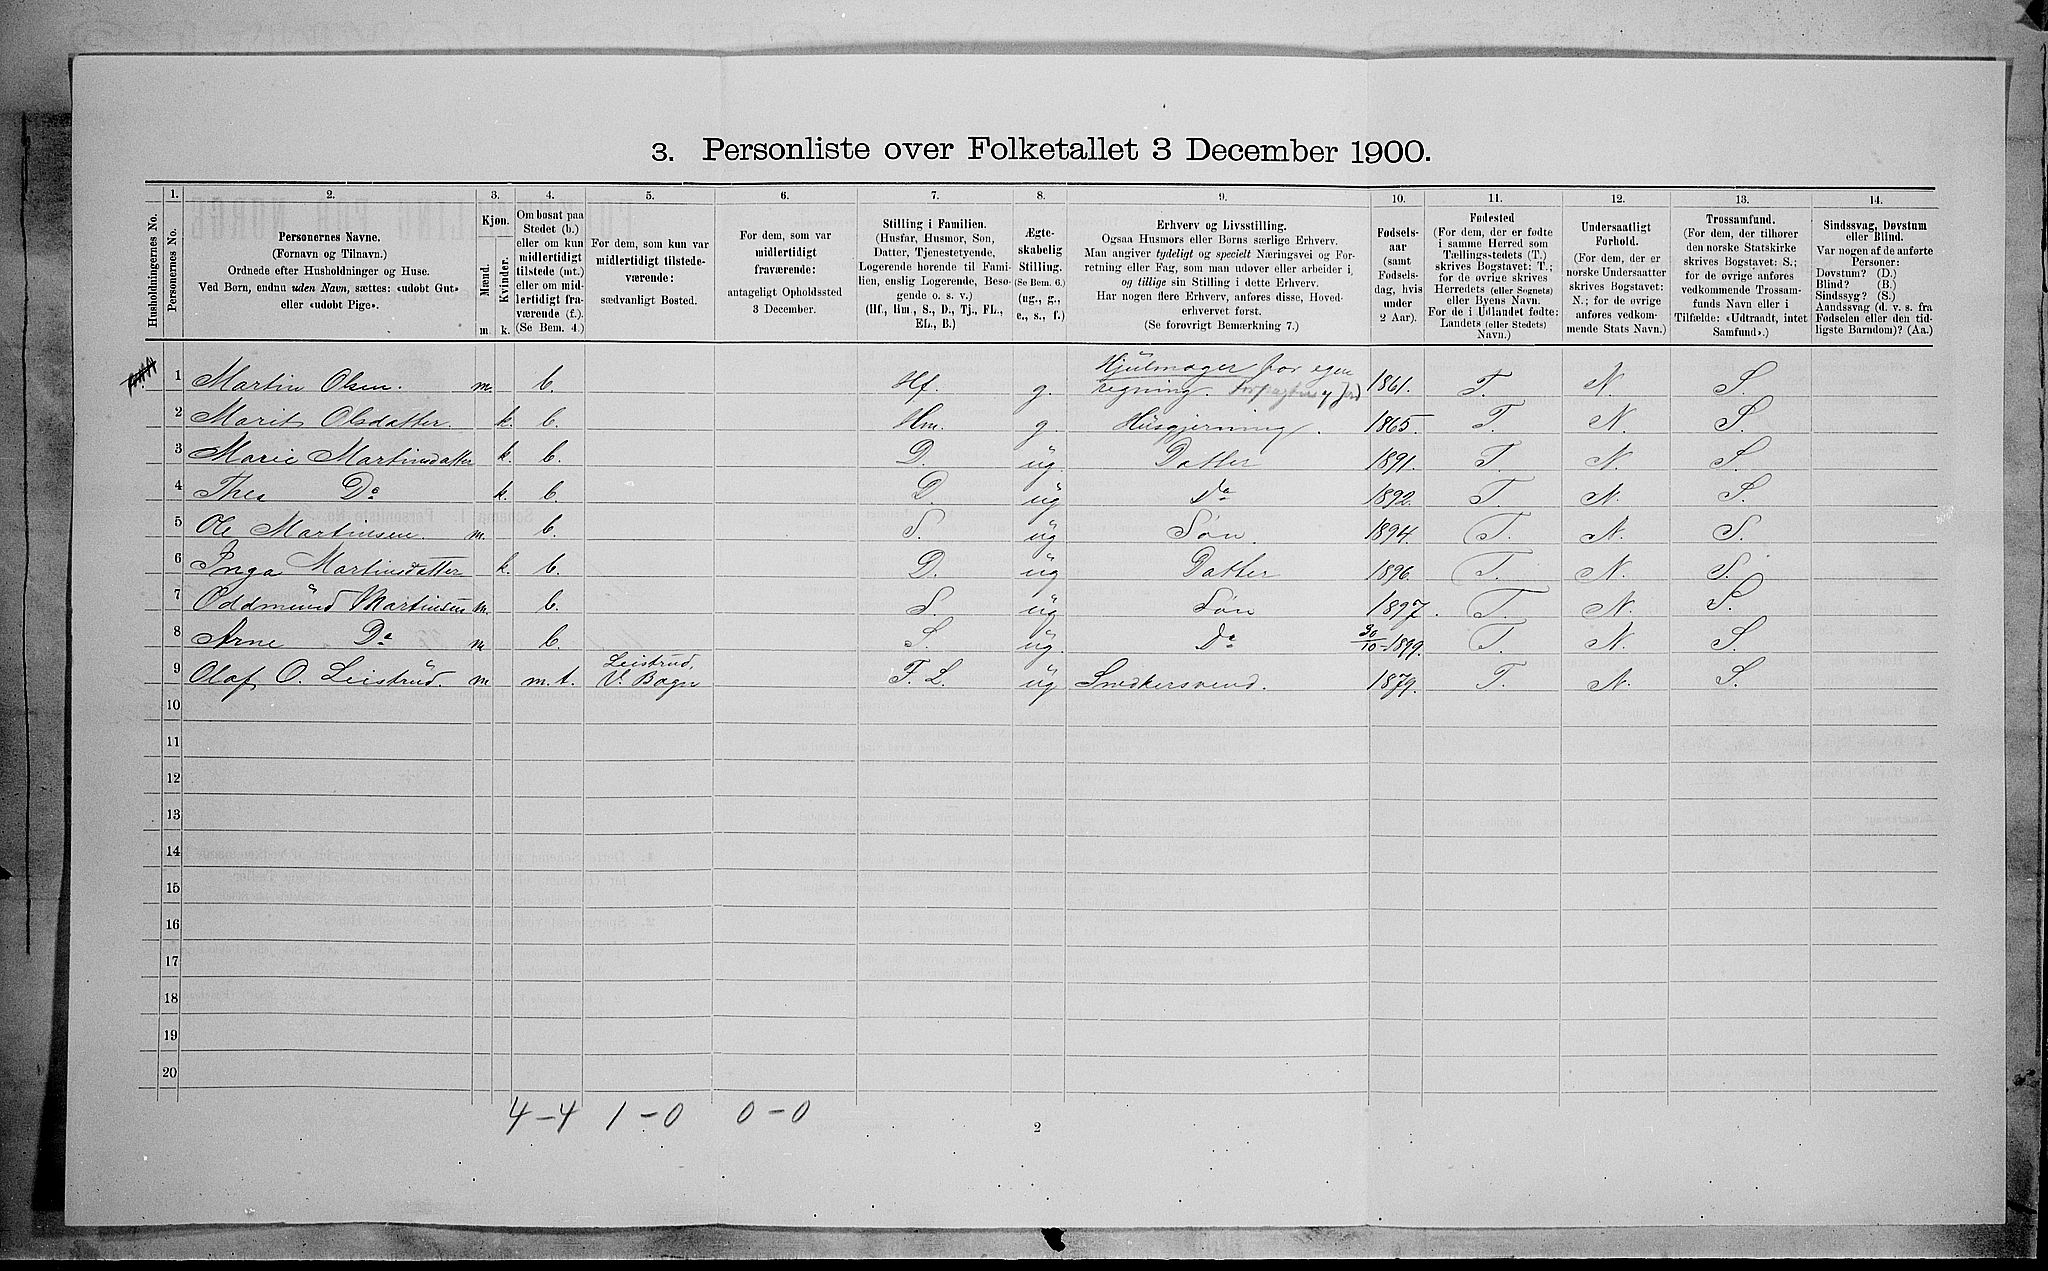 3. Personliste over Folketallet 3 December 1900.
1. 2. 3. 4. 5. 6. 7. 8. 9. 10. 11. 12. 13. 14.
Husholdningernes No.
Personernes No.
Personernes Navne.
(Fornavn og Tilnavn.)
Ordnede efter Husholdninger og Huse.
Ved Børn, endnu uden Navn, sættes: «udøbt Gut»
eller «udøbt Pige».
Kjøn.
Mænd.
Kvinder.
m. k.
Om bosat paa
Stedet (b.)
eller om kun
midlertidigt
tilstede (mt.)
eller om mid-
lertidigt fra-
værende (f.).
(Se Bem. 4.)
For dem, som kun var
midlertidigt tilstede-
værende:
sædvanligt Bosted.
For dem, som var
midlertidigt
fraværende:
antageligt Opholdssted
3 December.
Stilling i Familien.
(Husfar, Husmor, Søn,
Datter, Tjenestetyende,
Logerende hørende til Fami-
lien, enslig Logerende, Besø-
gende o. s. v.)
(Hf., Hm., S., D., Tj., FL.,
EL., B.)
Ægte-
skabelig
Stilling.
(Se Bem. 6.)
(ug., g.,
e., s., f.)
Erhverv og Livsstilling.
Ogsaa Husmors eller Børns særlige Erhverv.
Man angiver tydeligt og specielt Næringsvei og For-
retning eller Fag, som man udøver eller arbeider i,
og tillige sin Stilling i dette Erhverv.
Har nogen flere Erhverv, anføres disse, Hoved-
erhvervet først.
(Se forøvrigt Bemærkning 7.)
Fødsels-
aar
(samt
Fødsels-
dag, hvis
under
2 Aar).
Fødested
(For dem, der er fødte
i samme Herred som
Tællings-stedets (T.)
skrives Bogstavet: T.;
for de øvrige skrives
Herredets (eller Sognets)
eller Byens Navn.
For de i Udlandet fødte:
Landets (eller Stedets)
Navn.)
Undersaatligt
Forhold.
(For dem, der er
norske Undersaatter
skrives Bogstavet:
N.; for de øvrige
anføres vedkom-
mende Stats Navn.)
Trossamfund.
(For dem, der tilhører
den norske Statskirke
skrives Bogstavet: S.;
for de øvrige anføres
vedkommende Trossam-
funds Navn eller i
Tilfælde: «Udtraadt, intet
Samfund».)
Sindssvag, Døvstum
eller Blind.
Var nogen af de anførte
Personer:
Døvstum? (D.)
Blind? (B.)
Sindssyg? (S.)
Aandssvag (d. v. s. fra
Fødselen eller den tid-
ligste Barndom)? (Aa.)
1 Martin Olsen. m. b. Hf. g. Hjulmager for egen regning. 1861. T. N. S.
2 Marit Olsdatter. k. b. Hm. g. Husgjerning. 1865. T. N. S.
3 Marie Martinsdatter k. b. D. ug. Datter 1891. T. N. S.
4 Thea Do k. b. D. ug Do 1892. T. N. S.
5 Ole Martinsen. m. b. S. ug Søn. 1894. T. N. S.
6 Inga Martinsdatter k. b. D. ug Datter 1896. T. N. S.
7 Oddmund Martinsen m. b. S. ug Søn 1897. T. N. S.
8 Arne Do m b. S. ug. Do 30/10-1899. T. N. S.
9 Olaf O. Leistrud. m m.t. Leistrud, V. Bagn F. L. ug Snedkersvend. 1879. T. N. S.
10
11
12
13
14
15
16
17
18
19
20
4-4 1-0 0-0
2